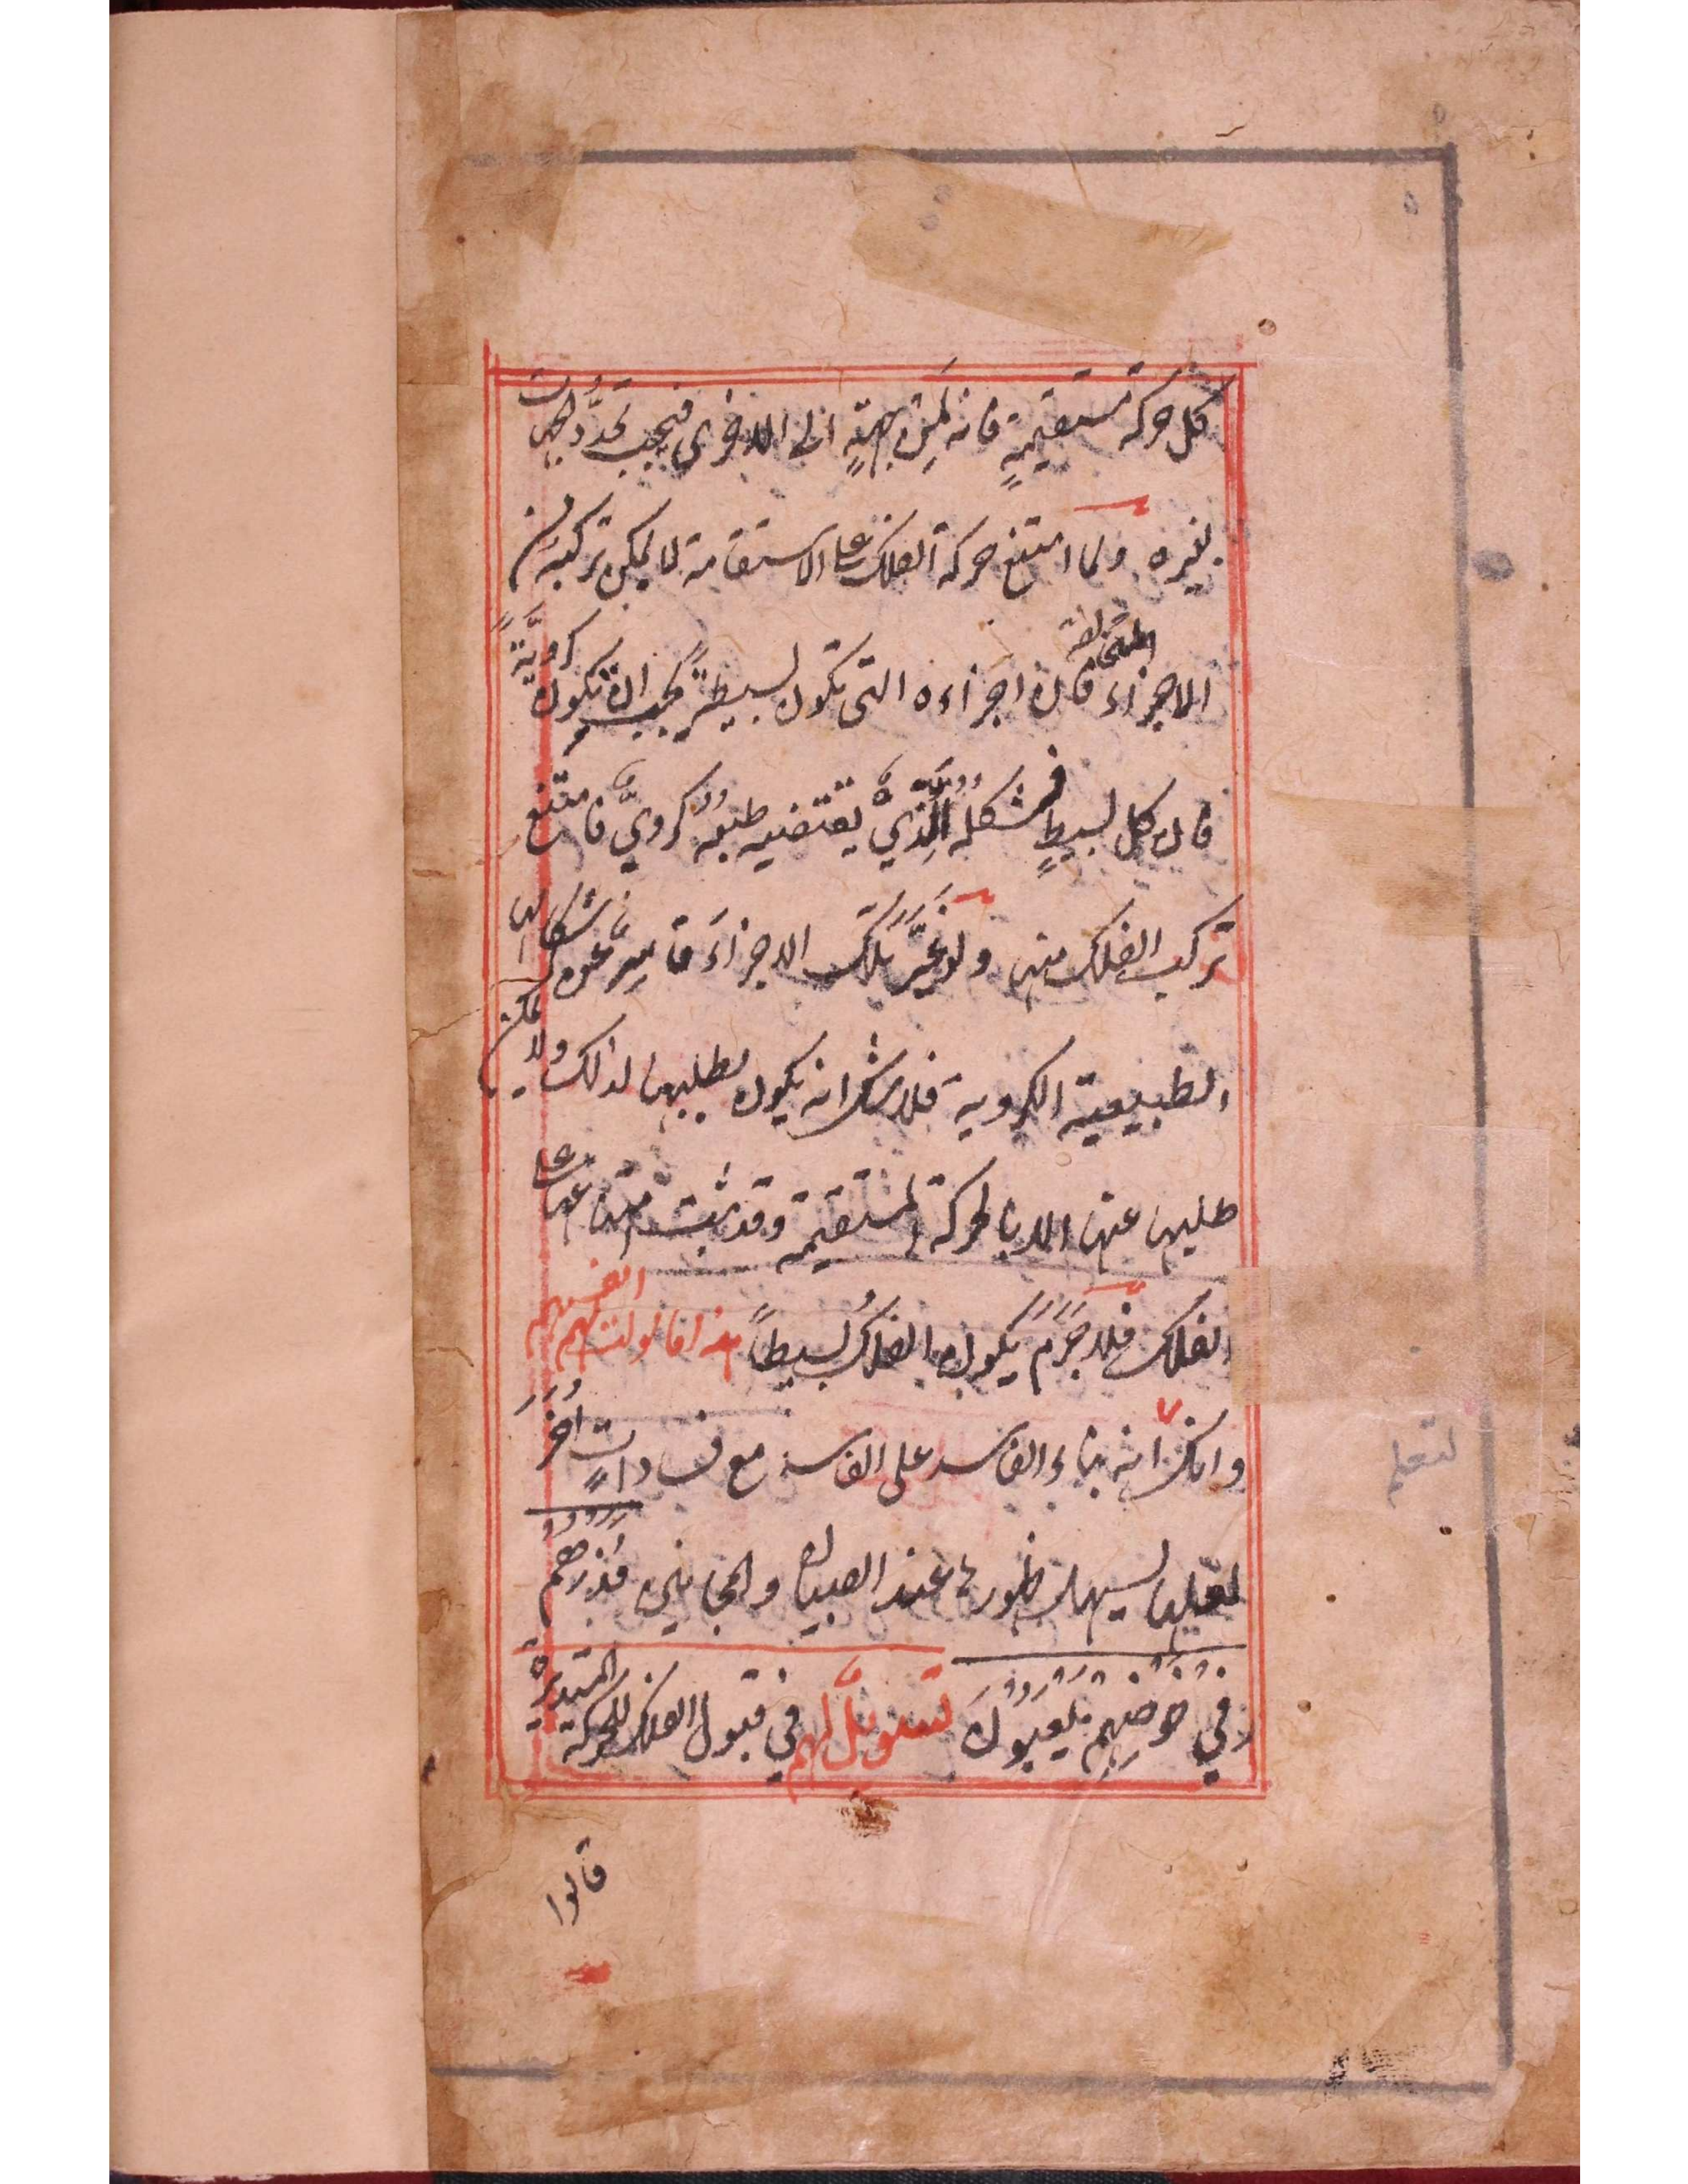 كل حركة مستقيمةٍ فانه لمِن جهةٍ الى الاخرى فيجب تحدُّد الجهات
بغيره ولما امتنع حركة الفلك على الاستقامة لا يمكن تركبه من
الاجزاء المتخالفة فان اجزاءه التى تكون بسيطةً يجب ان تكون كرويَّةً
فان كل بسيطٍ فشكله الَّذِيْ يقتضيه طبعه كرويٌّ فامتنع
تركب الفلك منها ولو غَيَّرَ تلك الاجزاءَ قاسِرٌ عن اشكالها
الطبيعية الكروية فلا شك انه يكون بطلبها لذلك ولا يمكن
طلبها عنها الا بالحركة المستقيمة وقد ثبت امتناعها على
الفلك فلا جَرَمَ يكون الفلكُ بسيطاً هذا ما سولت لهم انفسهم
وانك انه بناء الفاسد على الفاسد مع فسادات اُخَرَ
لعلها يسهل ظهورها عند الصبيان والمجانين فَذَرْهُمْ
فِيْ خَوْضِهِمْ يَلْعَبُوْنَ تسويلٌ لهم في قبول الفلك للحركة المستديرة
قالوا
لتعلم